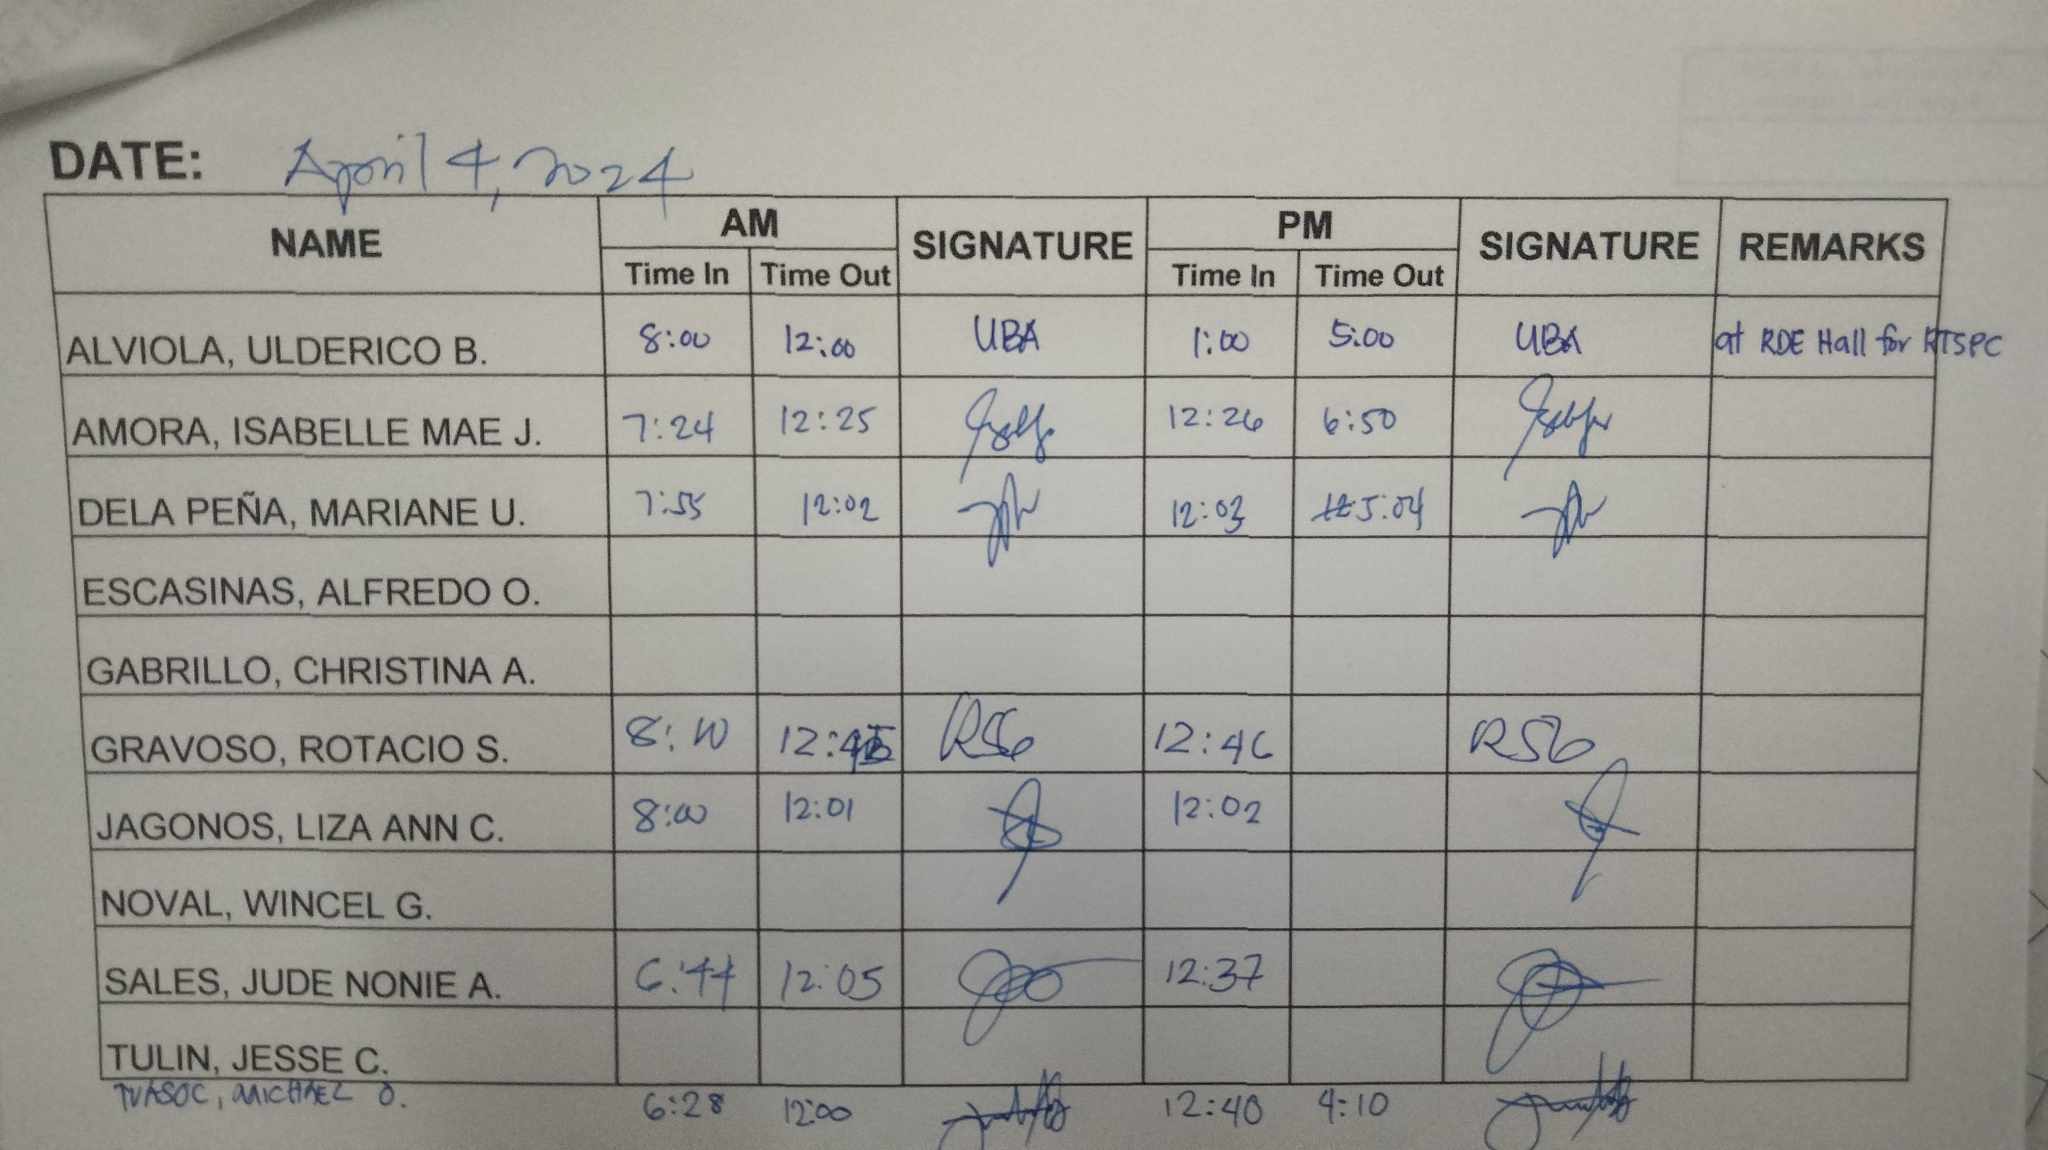 DATE: April 4, 2024
NAME AM SIGNATURE PM SIGNATURE REMARKS
Time In Time Out Time In Time Out
ALVIOLA, ULDERICO B. 8:00 12:00 UBA 1:00 5:00 UBA at RDE Hall for RTSPC
AMORA, ISABELLE MAE J. 7:24 12:25 12:26 6:50
DELA PEÑA, MARIANE U. 7:55 12:02 12:03 5:04
ESCASINAS, ALFREDO O.
GABRILLO, CHRISTINA A.
GRAVOSO, ROTACIO S. 8:10 RSG 12:46 RSG
JAGONOS, LIZA ANN C. 8:00 12:01 12:02
NOVAL, WINCEL G.
SALES, JUDE NONIE A. 6:44 12:05 12:37
TULIN, JESSE C.
TUASOC, MICHAEL O. 6:28 12:00 12:40 4:10